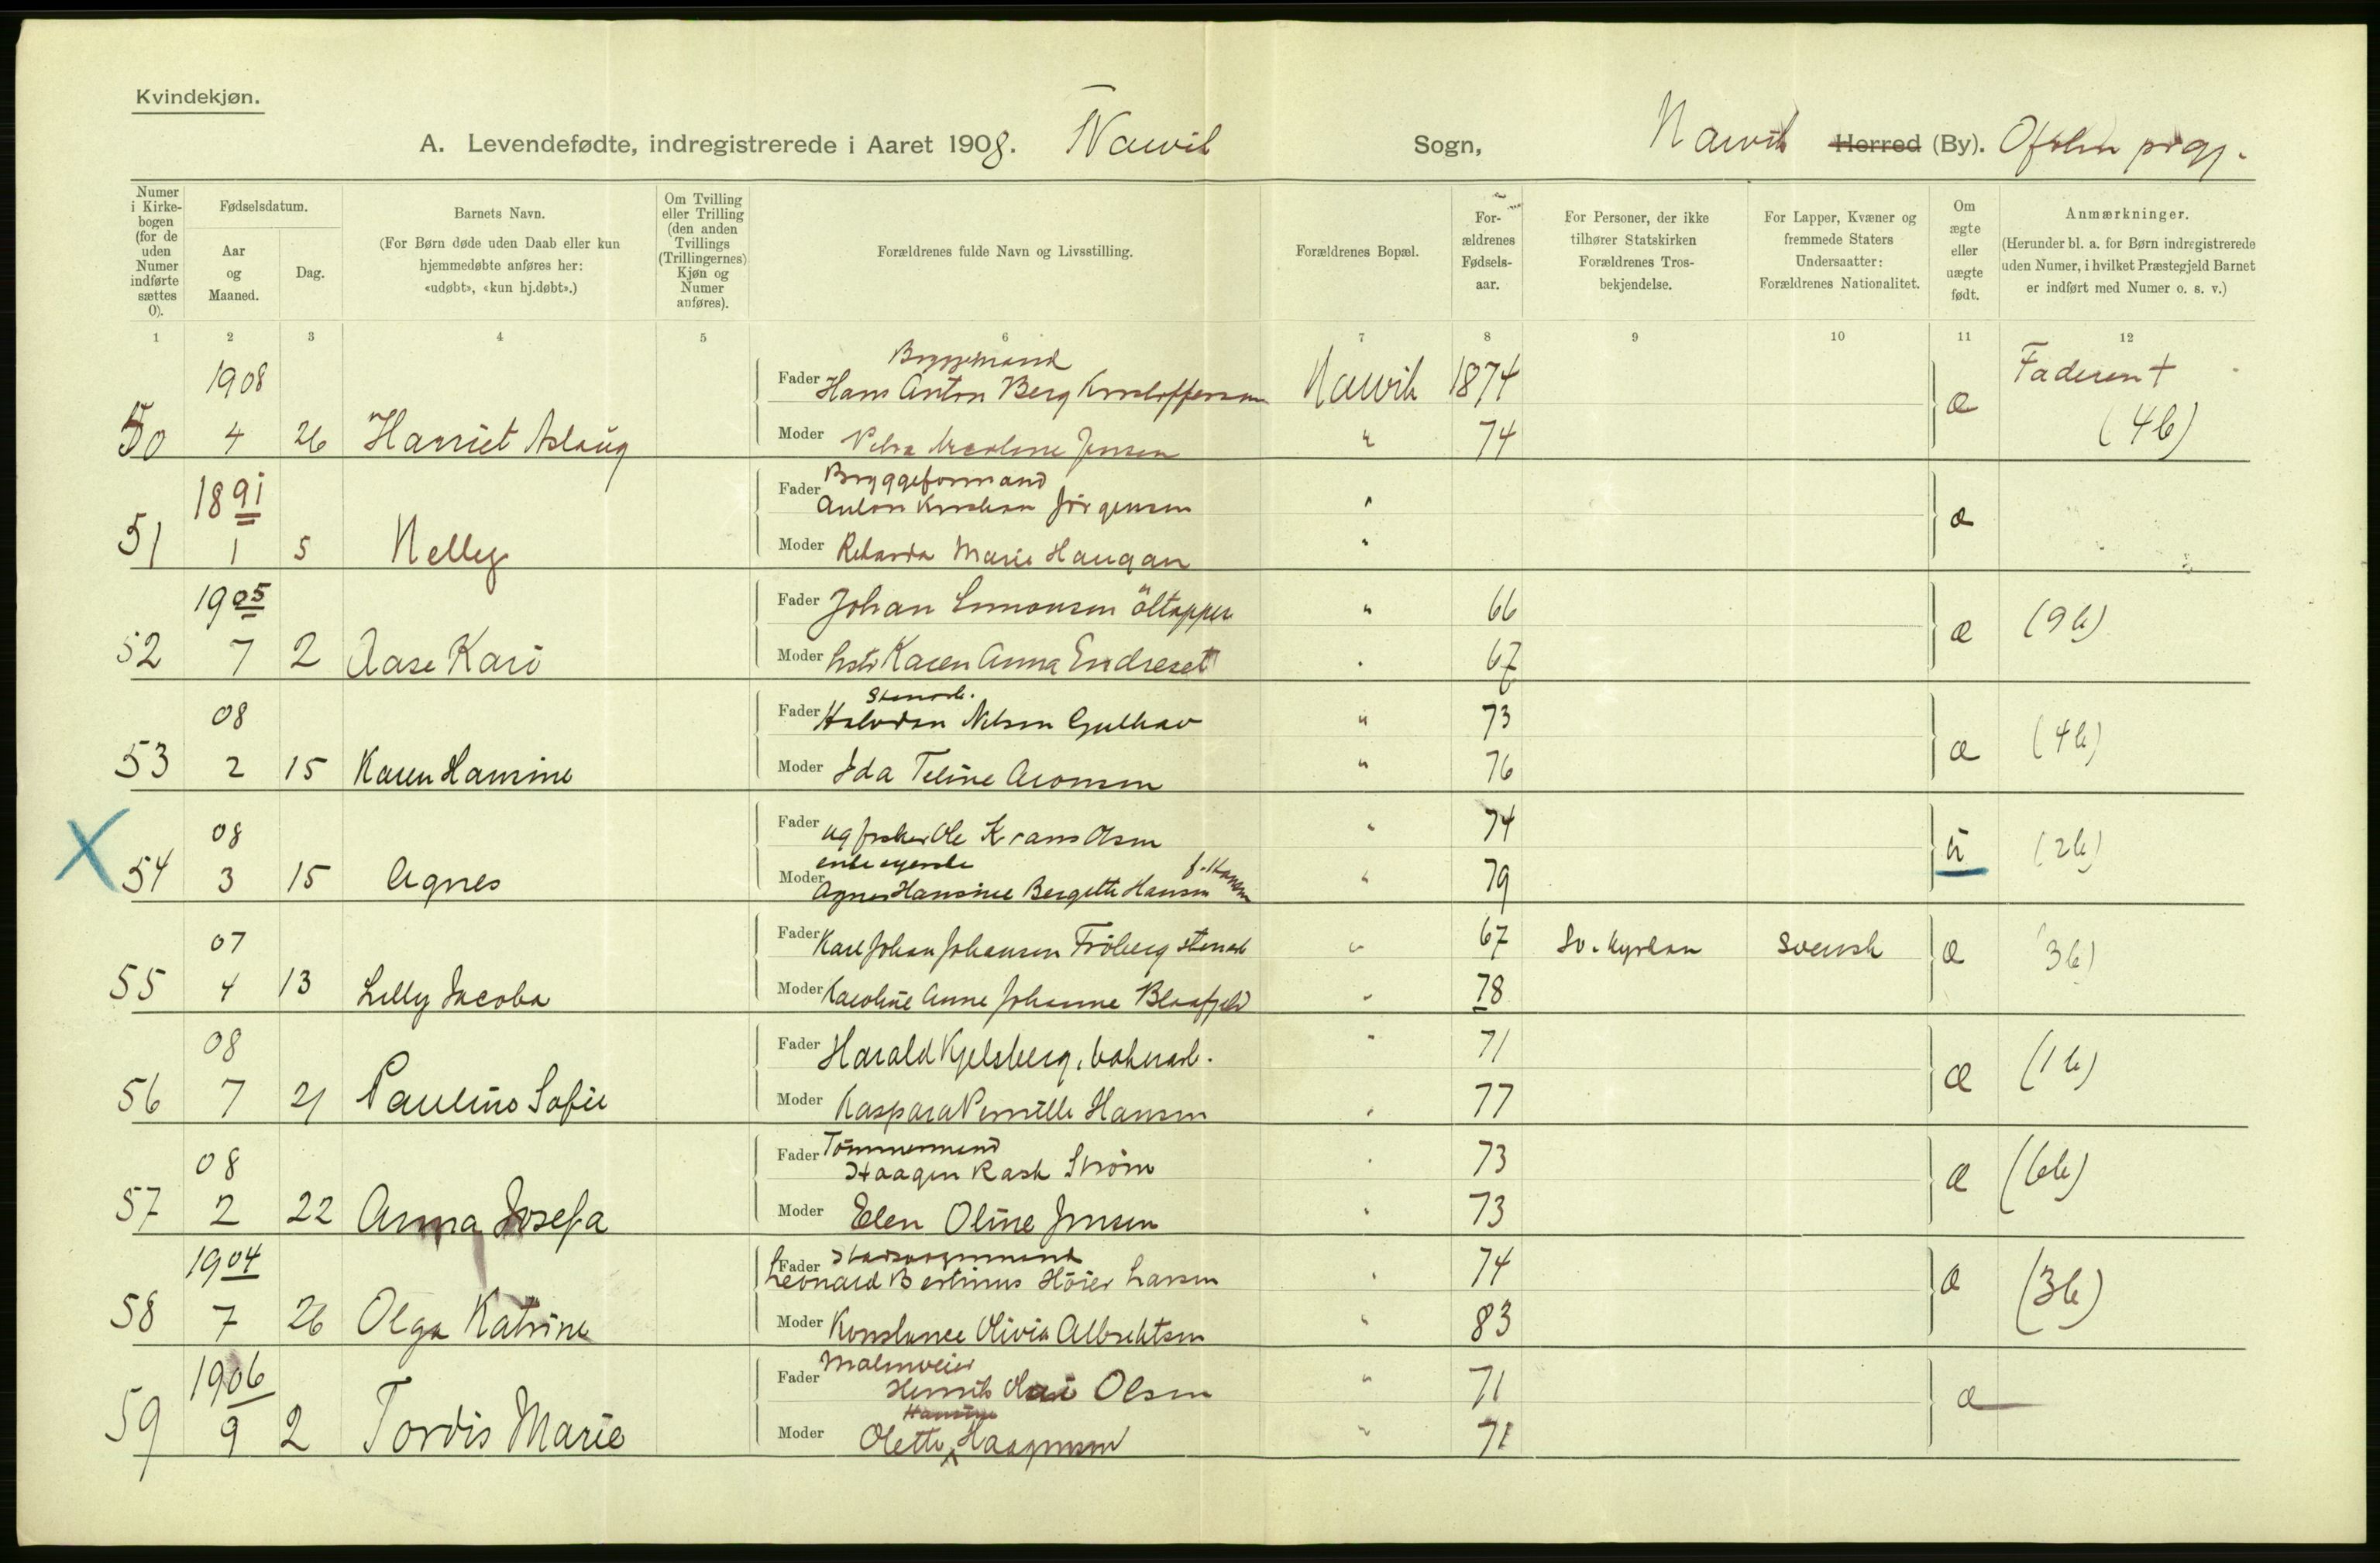 Kvindekjøn.
A. Levendefødte, indregistrerede i Aaret 1908. Narvik Sogn, Narvik Herred (By). Ofoten prgj.
Numer i Kirkebogen (for de uden Numer indførte sættes 0).
Fødselsdatum.
Aar og Maaned.
Dag.
Barnets Navn.
(For Børn døde uden Daab eller kun hjemmedøbte anføres her: «udøbt», «kun hj.døbt».)
Om Tvilling eller Trilling (den anden Tvillings (Trillingernes) Kjøn og Numer anføres).
Forældrenes fulde Navn og Livsstilling.
Forældrenes Bopæl.
For-
ældrenes
Fødsels-
aar.
For Personer, der ikke
tilhører Statskirken
Forældrenes Tros-
bekjendelse.
For Lapper, Kvæner og
fremmede Staters
Undersaatter:
Forældrenes Nationalitet.
Om
ægte
eller
uægte
født.
Anmærkninger.
(Herunder bl. a. for Børn indregistrerede
uden Numer, i hvilket Præstegjeld Barnet
er indført med Numer o. s. v.)
1 2 3 4 5 6 7 8 9 10 11 12
Bryggemand
1908 Fader Hans Anton Berg Kristoffersen Narvik 1874 Faderen +
50 4 26 Harriet Aslaug Moder Petra Jensen " 74 æ (4b)
Bryggeformand
1891 Fader Anton Kristian Jørgensen "
51 1 5 Nelly Moder Rikarda Marie Haugan " æ
1905 Fader Johan Simonsen øltapper " 66
52 7 2 Aase Kari Moder Karen Anna Endreset " 67 æ (9b)
Stenarb.
08 Fader Halvdan Nilsen Gulhav " 73
53 2 15 Karen Hansine Moder Ida Teline Aronsen " 76 æ (4b)
08 Fader ug fisker Ole Krans Olsen " 74
X 54 3 15 Agnes Moder Agnes Hansine Bergette Hansen f. Hansen " 79 u (2b)
07 Fader Karl Johan Johansen Fröberg stenarb " 67 Sv. kyrkan svensk
55 4 13 Lilly Jacoba Moder Karoline Anne Johanne Blaafjeld " 78 æ 3b)
08 Fader Harald Kjelsberg, " 71
56 7 21 Pauline Sofie Moder Kaspara Pernille Hansen " 77 æ (1b)
Tømmermand
08 Fader Haagen Rask Strøm " 73
57 2 22 Anna Josefa Moder Elen Oline Jensen " 73 æ (6b)
1904 Fader Leonard Bertinus Høier Larsen " 74
58 7 26 Olga Katrine Moder Konstance Olivia Albrektsen " 83 æ (3b)
Malmveier
1906 Fader Henrik Olai Olsen " 71
Hansine
59 9 2 Tordis Marie Moder Olette Haagensen " 71 æ